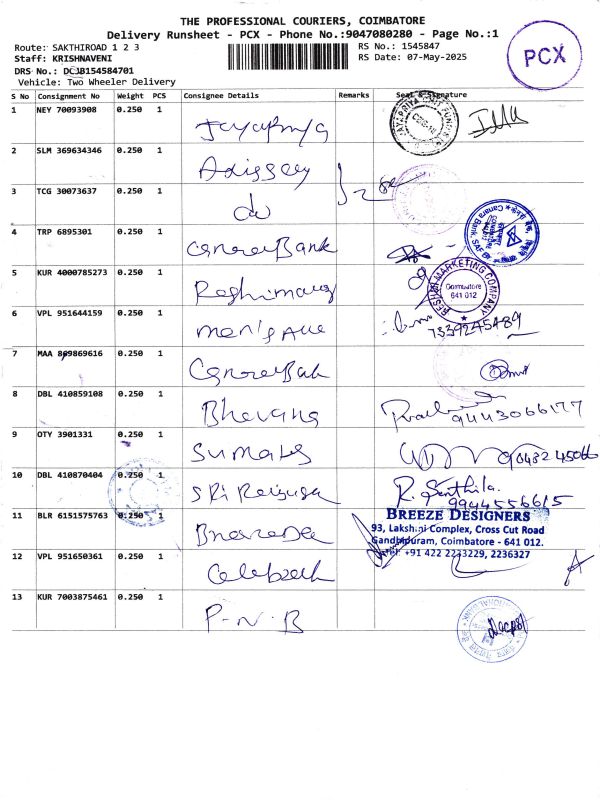 THE PROFESSIONAL COURIERS, COIMBATORE
Delivery Runsheet - PCX - Phone No.:9047080280 - Page No.:1
Route: SAKTHIROAD 1 2 3
Staff: KRISHNAVENI
DRS No.: DCJB154584701
Vehicle: Two Wheeler Delivery
RS No.: 1545847
RS Date: 07-May-2025
PCX
S No Consignment No Weight PCS Consignee Details Remarks Seal & Signature
1 NEY 70093908 0.250 1 Jayapriya
2 SLM 369634346 0.250 1
3 TCG 30073637 0.250 1 do
4 TRP 6895301 0.250 1 Canara Bank
Canara Bank
5 KUR 4000785273 0.250 1
RESHMI MARKETING COMPANY
Coimbatore
641 012
6 VPL 951644159 0.250 1 men's Ave 7339245489
7 MAA 869869616 0.250 1 Canara Bank
8 DBL 410859108 0.250 1 Bhavana 9443066177
9 OTY 3901331 0.250 1 Sumans
10 DBL 410870404 0.250 1 R. Senthila
9944556615
11 BLR 6151575763 0.250 1
BREEZE DESIGNERS
93, Lakshmi Complex, Cross Cut Road
Gandhipuram, Coimbatore - 641 012.
Tel: +91 422 2233229, 2236327
12 VPL 951650361 0.250 1
13 KUR 7003875461 0.250 1 P-N-B